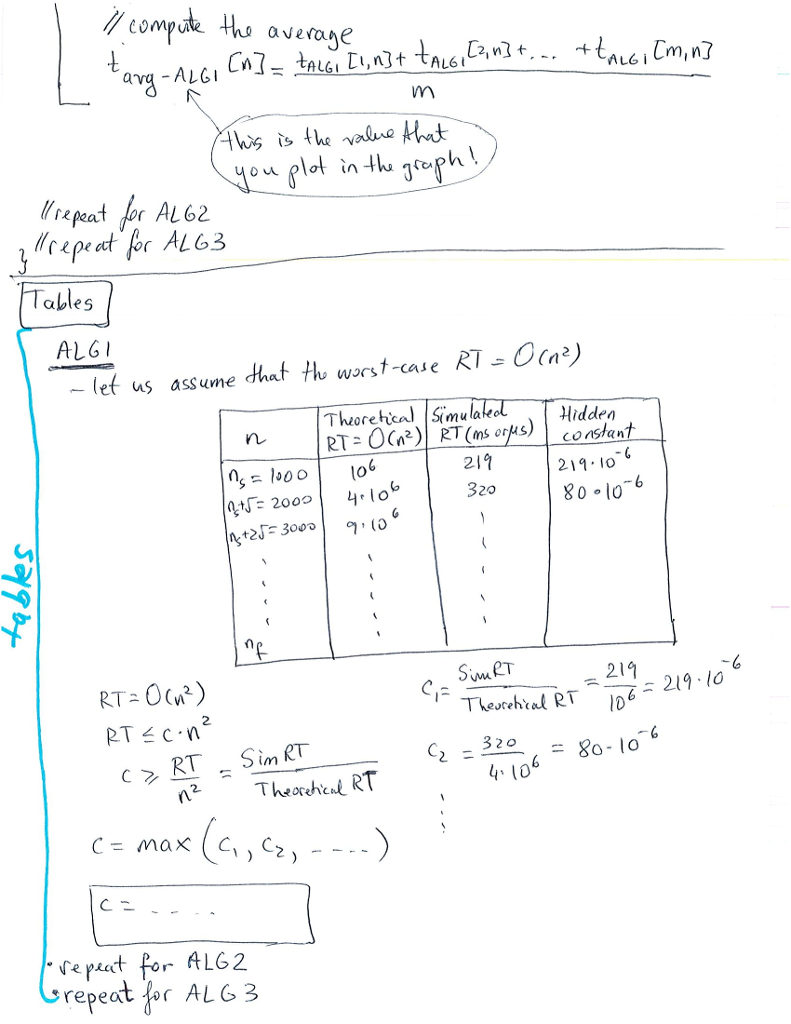 // compute the average
t avg-ALG1 [n] = t ALG1 [1,n] + t ALG1 [2,n] + ... + t ALG1 [m,n]
m
this is the value that
you plot in the graph!
// repeat for ALG2
// repeat for ALG3
}
Tables
ALG1
- let us assume that the worst-case RT = O(n²)
n | Theoretical RT = O(n²) | Simulated RT (ms or μs) | Hidden constant
ns = 1000 | 10⁶ | 219 | 219·10⁻⁶
ns+δ = 2000 | 4·10⁶ | 320 | 80·10⁻⁶
ns+2δ = 3000 | 9·10⁶
nf
tables
RT = O(n²)
RT ≤ c·n²
c ≥ RT / n² = Sim RT / Theoretical RT
C₁ = Sim RT / Theoretical RT = 219 / 10⁶ = 219·10⁻⁶
C₂ = 320 / 4·10⁶ = 80·10⁻⁶
C = max (C₁, C₂, -----)
C = - - . . .
• repeat for ALG2
• repeat for ALG3